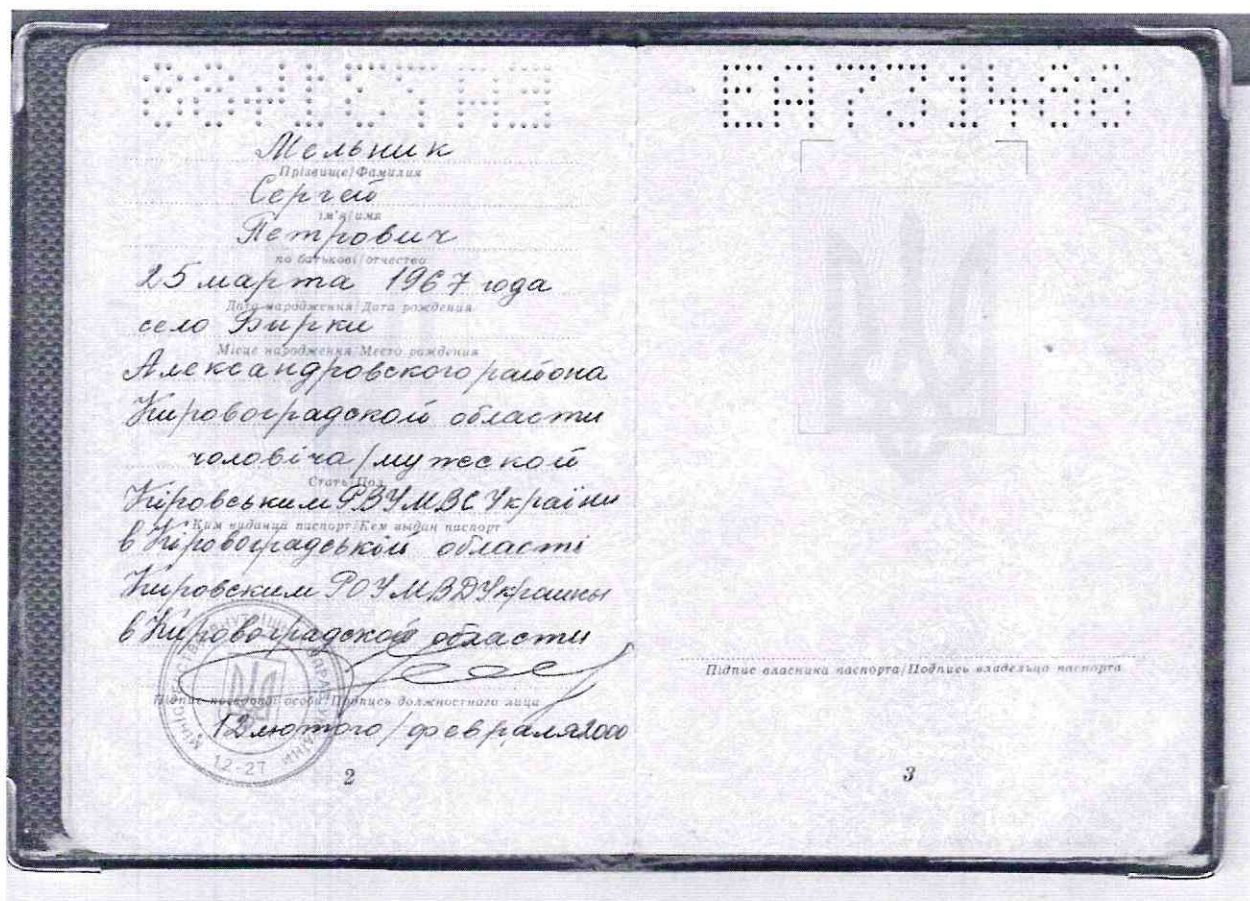 Мельник
Прізвище/Фамилия
Сергей
ім'я/имя
Петрович
по батькові/отчество
25 марта 1967 года
Дата народження/Дата рождения
село Бирки
Місце народження/Место рождения
Александровского района
Кировоградской области
чоловіча/мужской
Стать/Пол
Кіровським РВУМВС України
Ким виданий паспорт/Кем выдан паспорт
в Кіровоградській області
Кировским РОУМВД Украины
в Кировоградской области
Підпис посадової особи/Подпись должностного лица
12 лютого/февраля 2000
12-27
2
ЕА731488
Підпис власника паспорта/Подпись владельца паспорта
3